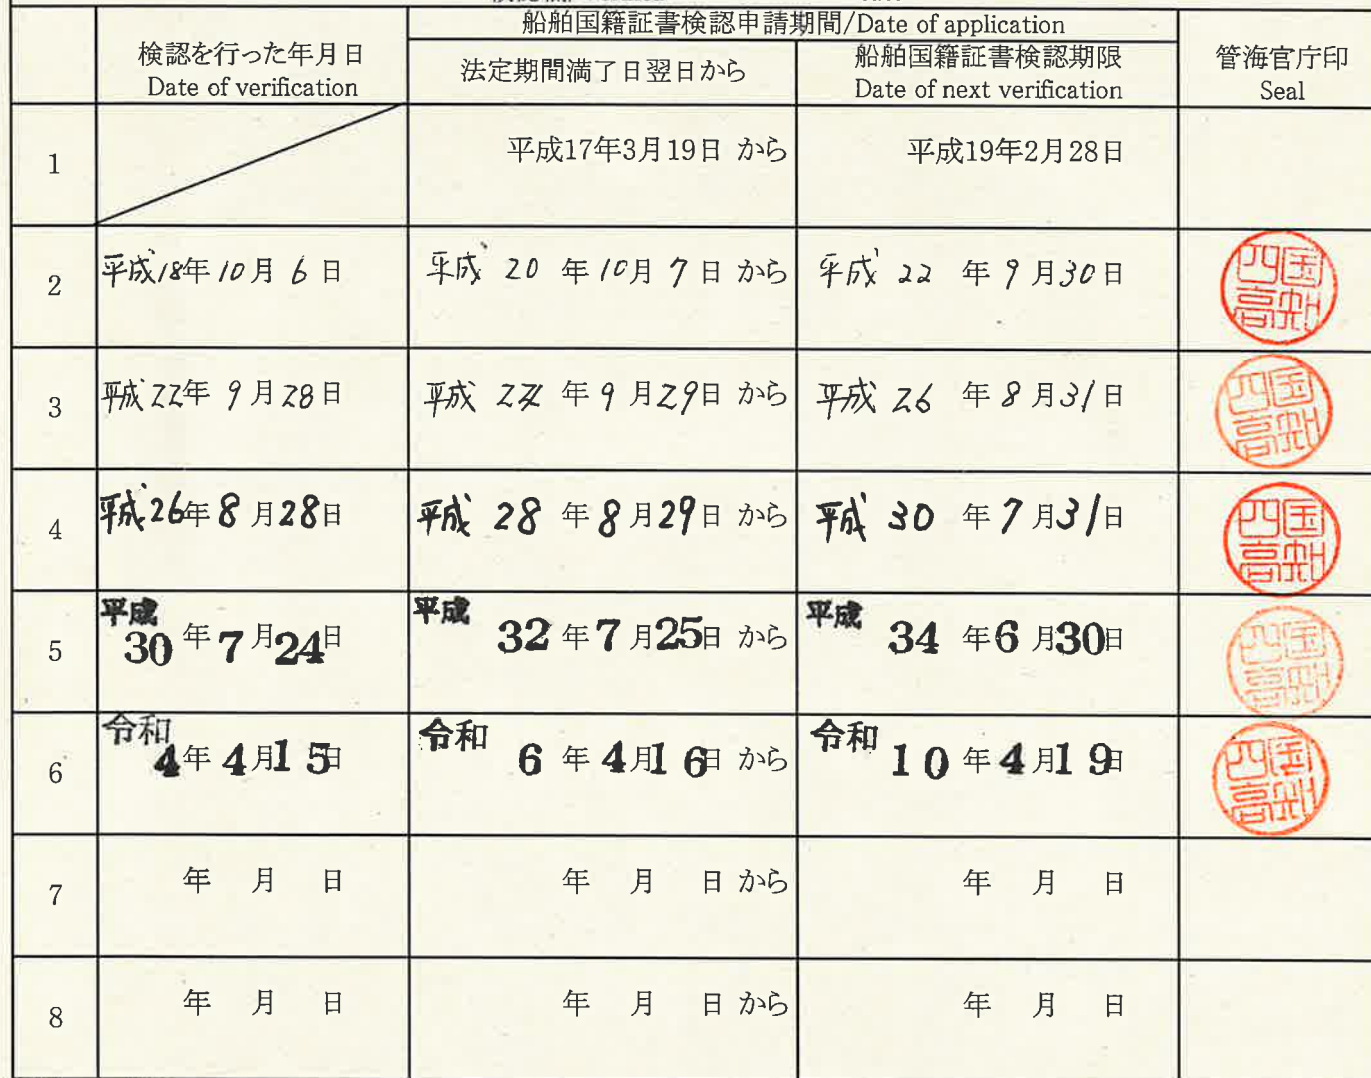 船舶国籍証書検認申請期間/Date of application
検認を行った年月日
Date of verification
法定期間満了日翌日から
船舶国籍証書検認期限
Date of next verification
管海官庁印
Seal
1 平成17年3月19日 から 平成19年2月28日
2 平成18年10月6日 平成 20 年10月7日 から 平成 22 年9月30日
四国
高知
3 平成22年9月28日 平成 24 年9月29日 から 平成 26 年8月31日
四国
高知
4 平成26年8月28日 平成 28 年8月29日 から 平成 30 年7月31日
四国
高知
5 平成30年7月24日 平成 32 年7月25日 から 平成 34 年6月30日
四国
高知
6 令和4年4月15日 令和 6 年4月16日 から 令和 10 年4月19日
四国
高知
7 年 月 日 年 月 日 から 年 月 日
8 年 月 日 年 月 日 から 年 月 日